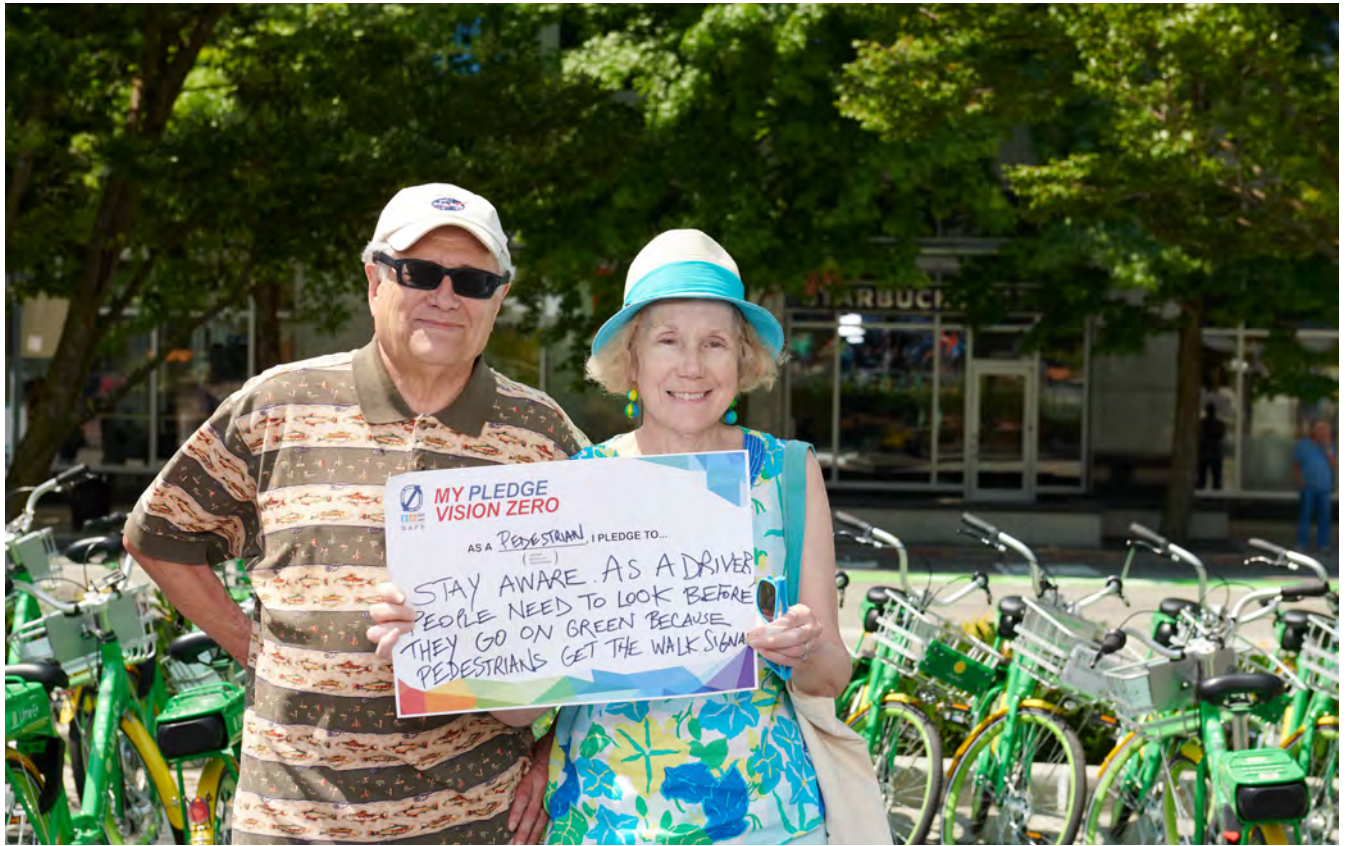 NASA
STARBUCK
MY PLEDGE
VISION ZERO
SAFE
AS A PEDESTRIAN, I PLEDGE TO...
STAY AWARE. AS A DRIVER
PEOPLE NEED TO LOOK BEFORE
THEY GO ON GREEN BECAUSE
PEDESTRIANS GET THE WALK SIGNAL
Lime-E